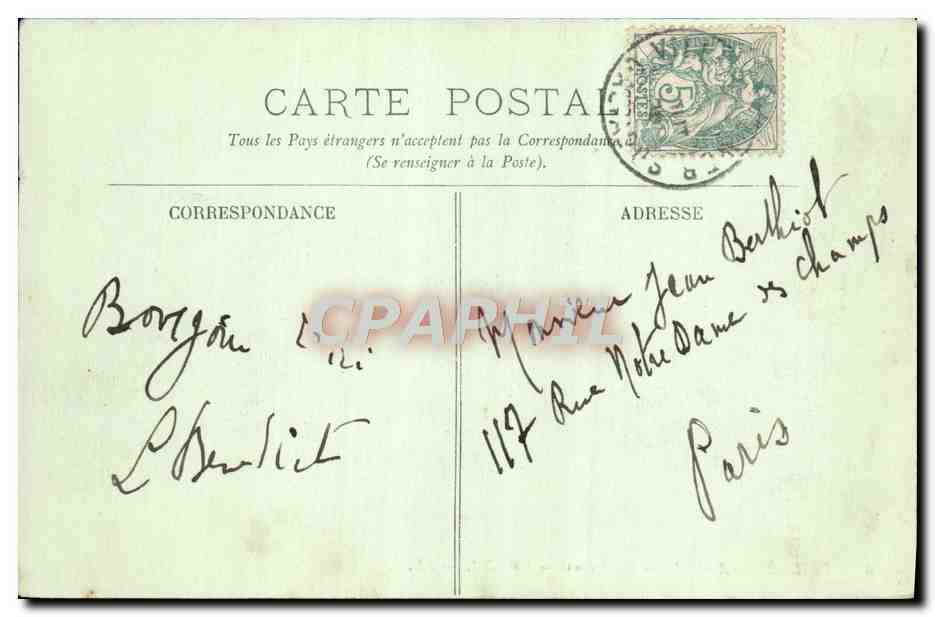 CARTE POSTAL
Tous les Pays étrangers n'acceptent pas la Correspondance
(Se renseigner à la Poste).
CORRESPONDANCE
ADRESSE
POSTES
5
Monsieur Jean Berthiot
117 Rue Notre Dame des champs
Paris
L Benedict
CPAPHIL